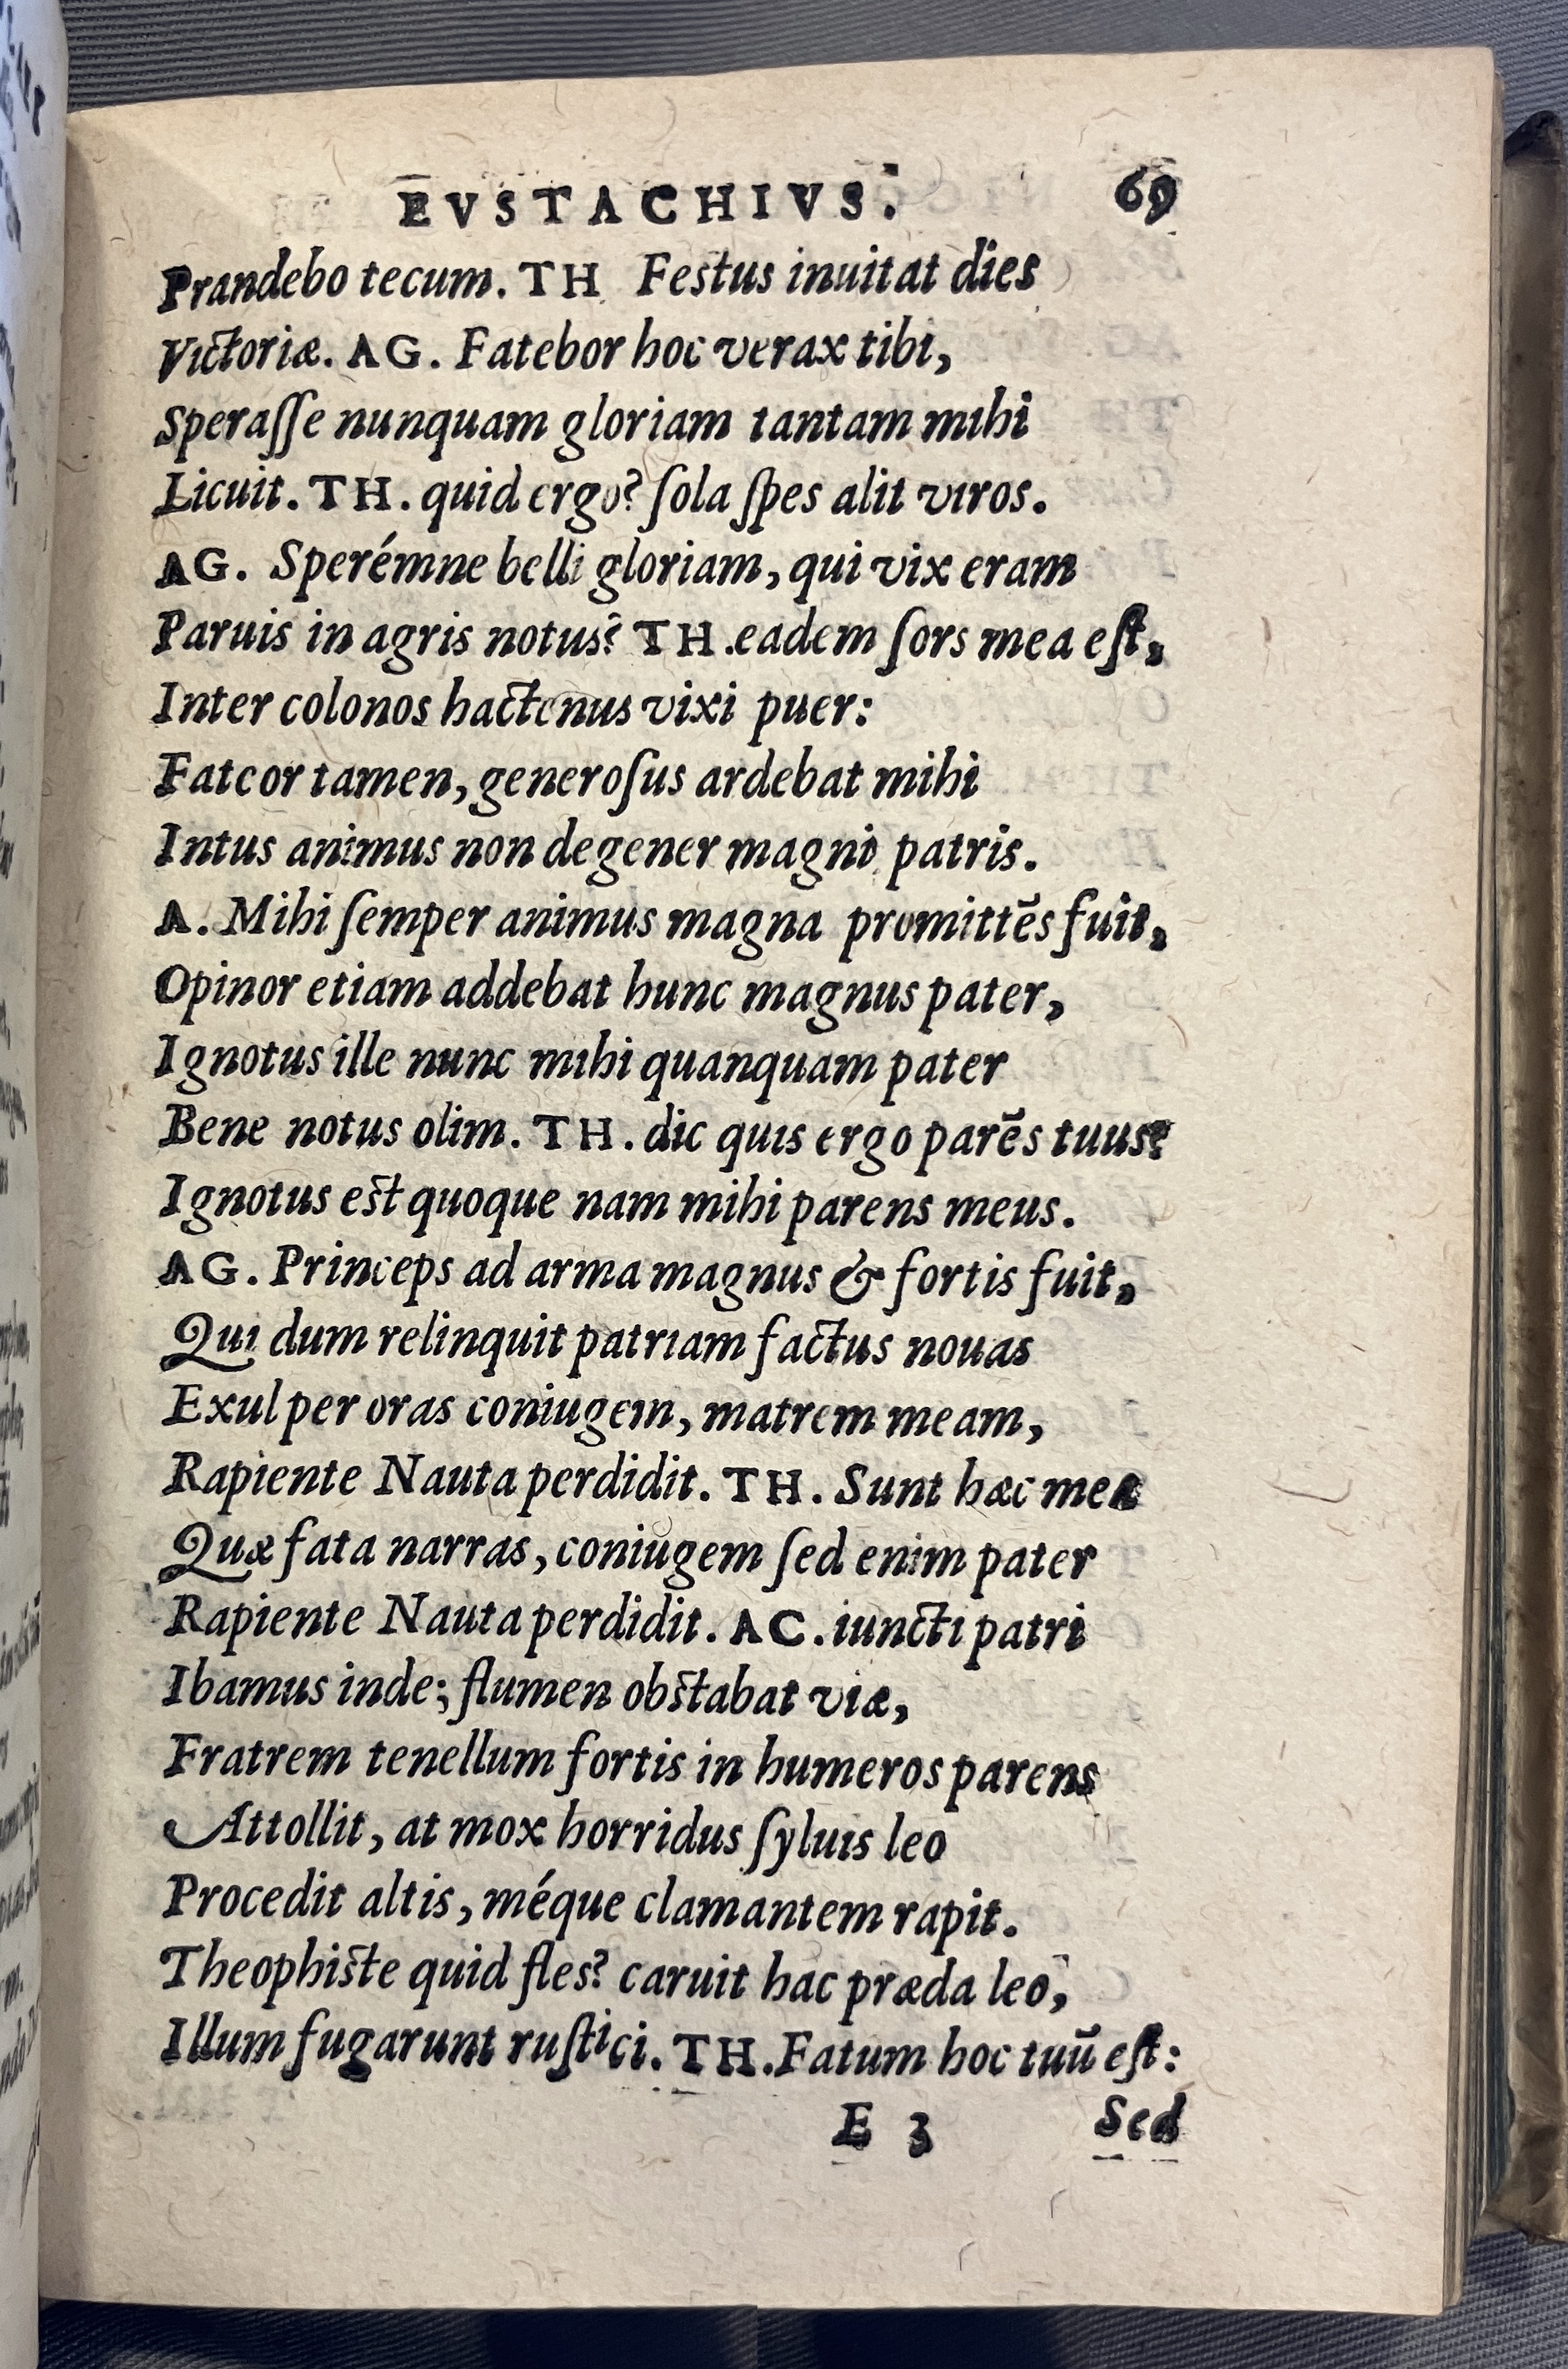 EVSTACHIVS. 69
Prandebo tecum. TH Festus inuitat dies
Victoriæ. AG. Fatebor hoc verax tibi,
Speraſſe nunquam gloriam tantam mihi
Licuit. TH. quid ergo? ſola ſpes alit viros.
AG. Sperémne belli gloriam, qui vix eram
Paruis in agris notus? TH. eadem ſors mea eſt,
Inter colonos hactenus vixi puer:
Fateor tamen, generoſus ardebat mihi
Intus animus non degener magni patris.
A. Mihi ſemper animus magna promittẽs fuit,
Opinor etiam addebat hunc magnus pater,
Ignotus ille nunc mihi quanquam pater
Bene notus olim. TH. dic quis ergo parẽs tuus?
Ignotus est quoque nam mihi parens meus.
AG. Princeps ad arma magnus & fortis fuit,
Qui dum relinquit patriam factus nouas
Exul per oras coniugem, matrem meam,
Rapiente Nauta perdidit. TH. Sunt hæc mea
Quæ fata narras, coniugem ſed enim pater
Rapiente Nauta perdidit. AC. iuncti patri
Ibamus inde; flumen obstabat viæ,
Fratrem tenellum fortis in humeros parens
Attollit, at mox horridus ſyluis leo
Procedit altis, méque clamantem rapit.
Theophiste quid fles? caruit hac præda leo,
Illum fugarunt ruſtici. TH. Fatum hoc tuũ eſt:
E 3 Sed